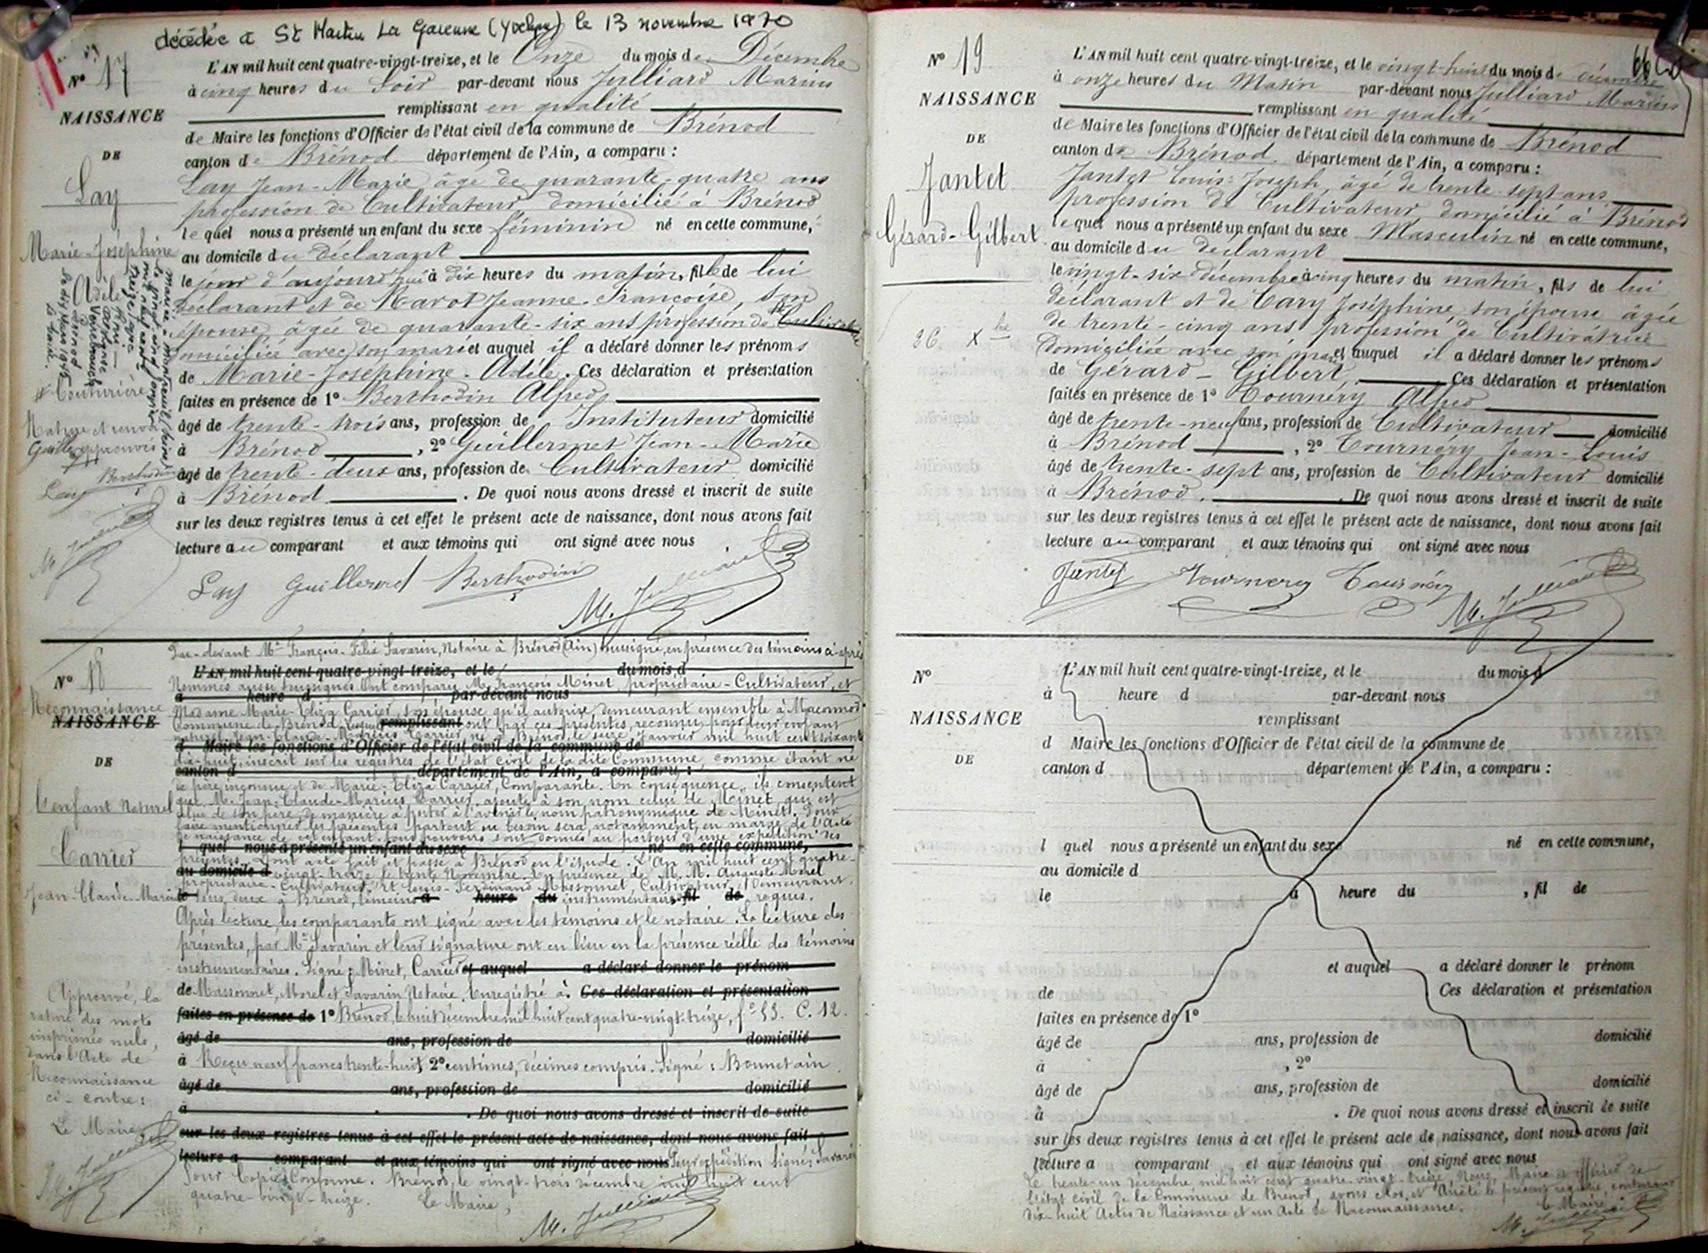 décédée à St Martin La Garenne (Yvelines) le 13 novembre 1970
N° 17
NAISSANCE
DE
Lay
Marie-Joséphine
Adèle
L'AN mil huit cent quatre-vingt-treize, et le Onze du mois de Décembre
à cinq heures du Soir par-devant nous Julliard Marius
remplissant en qualité
de Maire les fonctions d'Officier de l'état civil de la commune de Brénod
canton de Brénod département de l'Ain, a comparu :
Lay Jean-Marie âgé de quarante-quatre ans
profession de Cultivateur domicilié à Brénod
lequel nous a présenté un enfant du sexe féminin né en cette commune,
au domicile du déclarant
le jour d'aujourd'hui à dix heures du matin, fille de lui
déclarant et de Marot Jeanne-Françoise, son
épouse, âgée de quarante-six ans profession de
domiciliée avec son mari et auquel il a déclaré donner les prénoms
de Marie-Joséphine-Adèle. Ces déclaration et présentation
faites en présence de 1° Berthodin Alfred
âgé de trente-trois ans, profession de Instituteur domicilié
à Brénod , 2° Guillermet Jean-Marie
âgé de trente-deux ans, profession de Cultivateur domicilié
à Brénod . De quoi nous avons dressé et inscrit de suite
sur les deux registres tenus à cet effet le présent acte de naissance, dont nous avons fait
lecture au comparant et aux témoins qui ont signé avec nous
Lay Guillermet Berthodin
M. Julliard
N° 18
Reconnaissance
NAISSANCE
DE
L'enfant Naturel
Carrier
Jean-Claude-Marius
Par-devant Me François-Félix Savarin, Notaire à Brénod (Ain) soussigné, en présence des témoins ci-après
L'AN mil huit cent quatre-vingt-treize, et le du mois d
Nommés aussi soussignés Ont comparu Mr François Minet propriétaire-Cultivateur, et
à heure d par-devant nous
Madame Marie-Eliza Carrier, son épouse qu'il autorise, demeurant ensemble à Maconnod
Commune de Brénod. Lesquels remplissant ont par ces présentes, reconnu pour leur enfant
naturel Jean-Claude-Marius Carrier, né à Brénod le seize Janvier mil huit cent soixante
d Maire les fonctions d'Officier de l'état civil de la commune de
dix-huit, inscrit sur les registres de l'état civil de la dite Commune, comme étant né
canton d département de l'Ain, a comparu :
de père inconnu et de Marie-Eliza Carrier, Comparante. En conséquence, ils consentent
que Mr Jean-Claude-Marius Carrier, ajoute à son nom celui de Minet, qui est
celui de son père, de manière à porter à l'avenir le nom patronymique de Minet. Pour
faire mentionner les présentes partout où besoin sera, notamment, en marge de l'Acte
de naissance de cet enfant, tous pouvoirs sont donnés au porteur d'une expédition des
l quel nous a présenté un enfant du sexe né en cette commune,
présentes. Dont acte fait et passé à Brénod en l'étude. L'An mil huit cent quatre-
au domicile d vingt-treize, le trente Novembre. En présence de M.M. Auguste Morel
propriétaire-Cultivateur, et Louis-Ferdinand Massonnet, Cultivateur, demeurant
le tous deux à Brénod, témoins à heure du instrumentaires fil de requis.
Après lecture, les comparants ont signé avec les témoins et le notaire. La lecture des
présentes, par Me Savarin et leur signature ont eu lieu en la présence réelle des témoins
instrumentaires. Signé : Minet, Carrier et auquel a déclaré donner le prénom
de Massonnet, Morel et Savarin Notaire, Enregistré à Ces déclaration et présentation
faites en présence de 1° Brénod, le huit décembre mil huit cent quatre-vingt-treize, f° 53. C. 12.
âgé de ans, profession de domicilié
à Reçu neuf francs trente-huit 2° centimes, décimes compris. Signé : Bonnetain
âgé de ans, profession de domicilié
à . De quoi nous avons dressé et inscrit de suite
sur les deux registres tenus à cet effet le présent acte de naissance, dont nous avons fait
lecture a comparant et aux témoins qui ont signé avec nous Pour expédition Signé : Savarin
Pour Copie Conforme. Brénod, le vingt-trois décembre mil huit cent
quatre-vingt-treize. Le Maire,
M. Julliard
Approuvé, la
rature des mots
imprimés nuls,
dans l'Acte de
Reconnaissance
ci-contre :
Le Maire
M. Julliard
N° 19
NAISSANCE
DE
Jantet
Gérard-Gilbert
26 Xbre
L'AN mil huit cent quatre-vingt-treize, et le vingt-huit du mois de décembre
à onze heures du Matin par-devant nous Julliard Marius
remplissant en qualité
de Maire les fonctions d'Officier de l'état civil de la commune de Brénod
canton de Brénod département de l'Ain, a comparu :
Jantet Louis-Joseph, âgé de trente-sept ans
profession de Cultivateur domicilié à Brénod
lequel nous a présenté un enfant du sexe Masculin né en cette commune,
au domicile du déclarant
le vingt-six décembre à cinq heures du matin, fils de lui
déclarant et de Cary Joséphine son épouse âgée
de trente-cinq ans profession de Cultivatrice
domiciliée avec son mari et auquel il a déclaré donner les prénoms
de Gérard-Gilbert, Ces déclaration et présentation
faites en présence de 1° Tournery Alfred
âgé de trente-neuf ans, profession de Cultivateur domicilié
à Brénod , 2° Tournéry Jean-Louis
âgé de trente-sept ans, profession de Cultivateur domicilié
à Brénod. De quoi nous avons dressé et inscrit de suite
sur les deux registres tenus à cet effet le présent acte de naissance, dont nous avons fait
lecture au comparant et aux témoins qui ont signé avec nous
Jantet Tournery Tournéry
M. Julliard
N°
NAISSANCE
DE
L'AN mil huit cent quatre-vingt-treize, et le du mois d
à heure d par-devant nous
remplissant
d Maire les fonctions d'Officier de l'état civil de la commune de
canton d département de l'Ain, a comparu :
l quel nous a présenté un enfant du sexe né en cette commune,
au domicile d
le à heure du , fil de
et auquel a déclaré donner le prénom
de Ces déclaration et présentation
faites en présence de 1°
âgé de ans, profession de domicilié
à , 2°
âgé de ans, profession de domicilié
à . De quoi nous avons dressé et inscrit de suite
sur les deux registres tenus à cet effet le présent acte de naissance, dont nous avons fait
lecture a comparant et aux témoins qui ont signé avec nous
Le trente-un décembre mil huit cent quatre-vingt-treize, Nous, Maire et officier de
l'état civil de la Commune de Brénod, avons clos et Arrêté le présent registre contenant
dix-huit Actes de Naissance et un Acte de Reconnaissance. Le Maire
M. Julliard